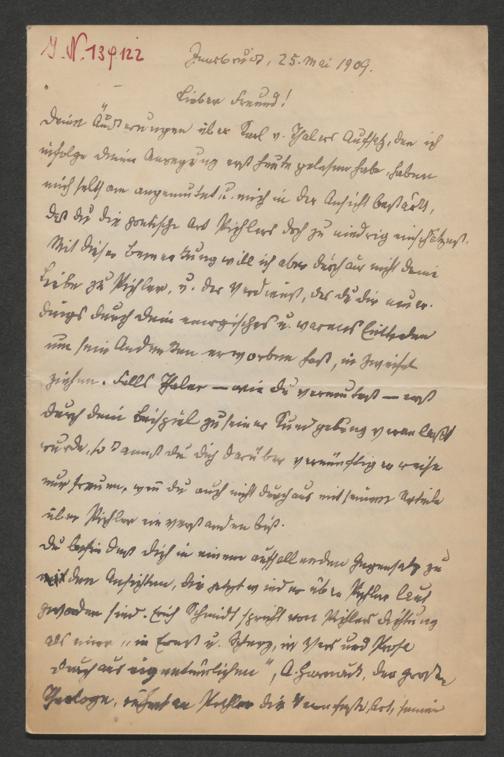 J. N. 139122
Innsbruck, 25. Mai 1909.
Lieber Freund!
Deine Äußerungen über Karl v. Thalers Aufsatz, den ich
infolge deiner Anregung erst heute gelesen habe, haben
mich seltsam angemutet u. mich in der Ansicht bestärkt,
daß du die poetische Art Pichlers doch zu niedrig einschätzest.
Mit dieser Bemerkung will ich aber durchaus nicht deine
Liebe zu Pichler, u. das Verdienst, das du dir neuer-
dings durch dein energisches u. warmes Eintreten
um sein Andenken erworben hast, in Zweifel
ziehen. Falls Thaler — wie du vermutest — erst
durch dein Beispiel zu seiner Kundgebung veranlaßt
wurde, so kannst du dich darüber vernünftigerweise
nur freuen, wenn du auch nicht durchaus mit seinem Urteile
über Pichler einverstanden bist.
Du befindest dich in einem auffallenden Gegensatz zu
den Ansichten, die jetzt wieder über Pichler laut
geworden sind. Erich Schmidt spricht von Pichlers Dichtung
als einer „in Ernst u. Scherz, in Vers und Prosa
durchaus eigentümlichen", A. Harnack, der große
Theologe, rühmt an Pichler die Art, seine